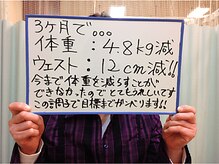 3ヶ月で...
体重：4.8kg減
ウェスト：12cm減!!
今まで体重を減らすことが
できなかったのでとてもうれしいです
この調子で目標までがんばります!!